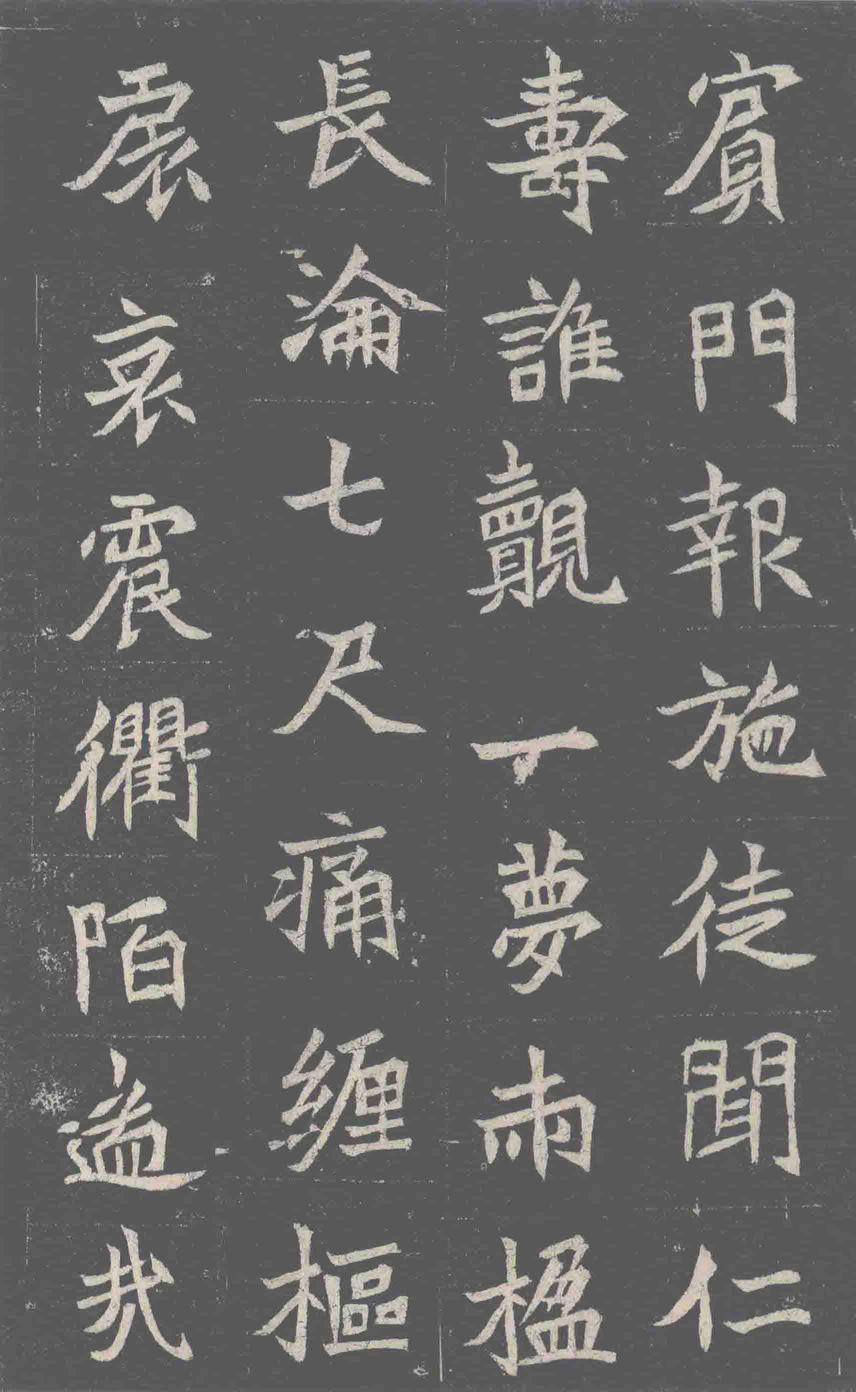 賓門報施徒聞仁
壽誰覿一夢兩楹
長淪七尺痛纏樞
扆哀震衢陌